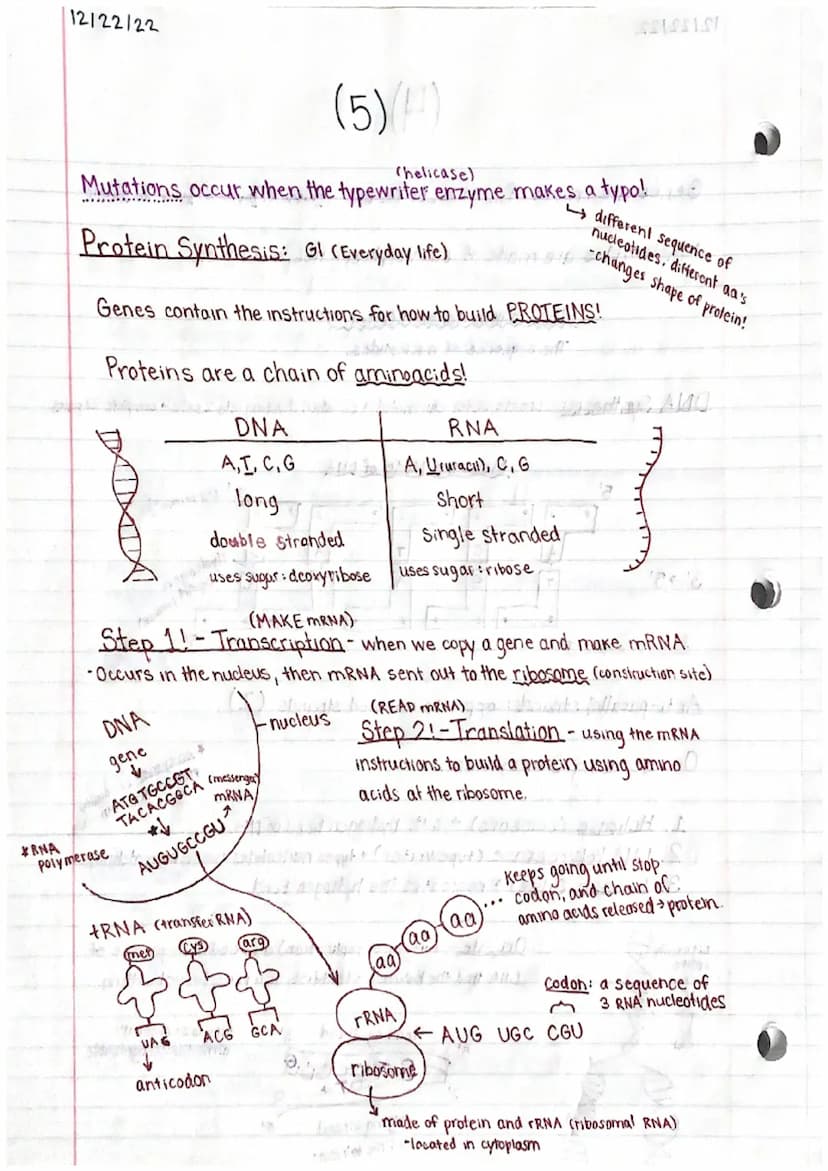 12/22/22
(5)
(helicase)
Mutations occur when the typewriter enzyme makes a typo!
↳ different sequence of
nucleotides, different aa's
-changes shape of protein!
Protein Synthesis: G1 (Everyday life)
Genes contain the instructions for how to build PROTEINS!
Proteins are a chain of aminoacids!
DNA RNA
A,T, C,G A, U(uracil), C, G
long short
double stranded single stranded
uses sugar: deoxyribose uses sugar: ribose
(MAKE mRNA)
Step 1! - Transcription - when we copy a gene and make mRNA
-Occurs in the nucleus, then mRNA sent out to the ribosome (construction site)
nucleus
DNA
gene
ATGTGCCGT
TACACGGCA
(messenger)
mRNA
*↓
AUGUGCCGU
*RNA
polymerase
(READ mRNA)
Step 2! - Translation - using the mRNA
instructions to build a protein using amino
acids at the ribosome.
Keeps going until stop
codon, and chain of
amino acids released → protein.
tRNA (transfer RNA)
met cys arg
UAG ACG GCA
anticodon
aa aa aa ...
codon: a sequence of
3 RNA nucleotides
rRNA
← AUG UGC CGU
ribosome
made of protein and rRNA (ribosomal RNA)
-located in cytoplasm